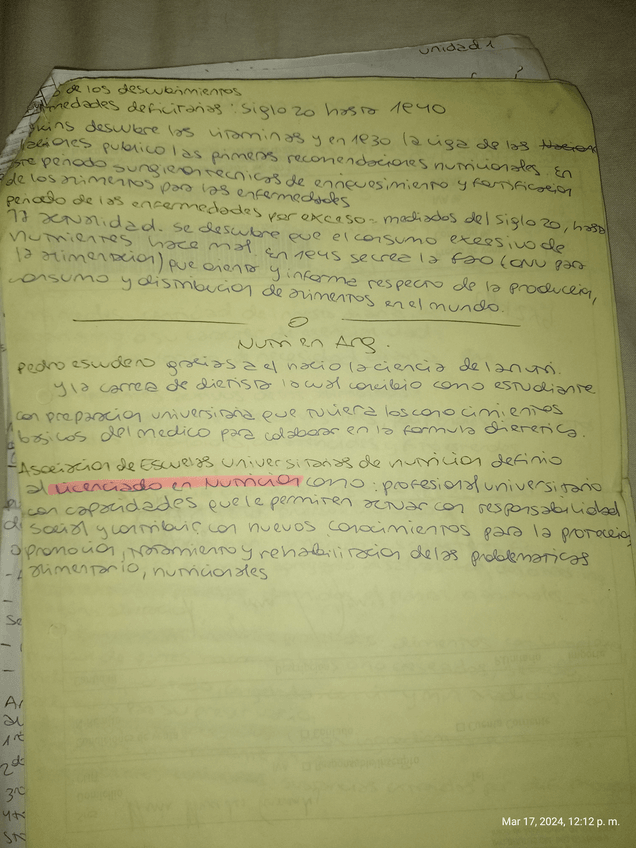 unidad 1
de los descubrimientos
medades deficitarias: Siglo 20 hasta 1940
kins descubre las vitaminas y en 1930 la liga de las
naciones publico las primeras recomendaciones nutricionales. En
este periodo surgieron tecnicas de enriquesimiento y fortificacion
de los alimentos para las enfermedades
periodo de las enfermedades por exceso = mediados del siglo 20, hasta
la actualidad. se descubre que el consumo excesivo de
nutrientes hace mal. En 1945 se crea la FAO (ONU para
la alimentacion) que orienta y informa respecto de la produccion,
consumo y distribucion de alimentos en el mundo.
Nutri en Arg.
pedro escudero gracias a el nacio la ciencia de la nutri.
y la carrea de dietista la cual concibio como estudiante
con preparacion universitaria que tuviera los conocimientos
basicos del medico para colaborar en la formula dietetica.
-Asociacion de Escuelas universitarias de nutricion definio
al Licenciado en Nutricion como: profesional universitario
con capacidades que le permiten actuar con responsabilidad
social y contribuir con nuevos conocimientos para la proteccion
promocion, tratamiento y rehabilitacion de las problematicas
alimentario, nutricionales
1re
2do
3ro
Mar 17, 2024, 12:12 p. m.